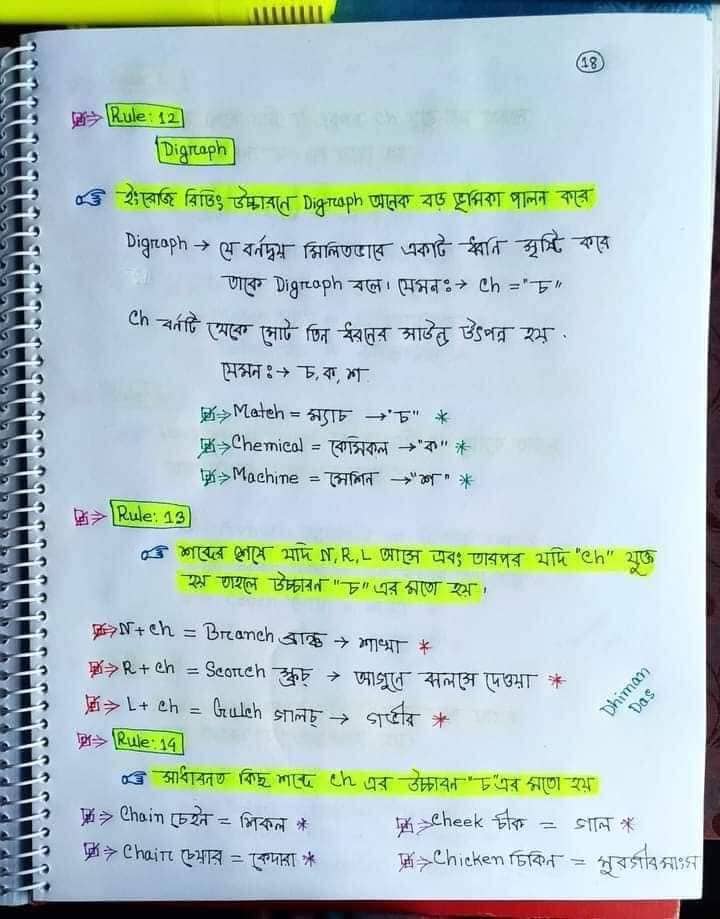 18
Rule: 12
Digraph
ইংরেজি রিডিং উচ্চারনে Digraph অনেক বড় ভূমিকা পালন করে
Digraph → যে বর্নদ্বয় মিলিতভাবে একটি ধ্বনি সৃষ্টি করে
তাকে Digraph বলে। যেমনঃ→ Ch = "চ"
Ch বর্নটি থেকে মোট তিন ধরনের সাউন্ড উৎপন্ন হয়.
যেমনঃ→ চ, ক, শ.
⇒ Match = ম্যাচ → "চ" *
⇒ Chemical = কেমিকল → "ক" *
⇒ Machine = মেশিন → "শ" *
⇒ Rule: 13
শব্দের শেষে যদি N, R, L আসে এবং তারপর যদি "Ch" যুক্ত
হয় তাহলে উচ্চারন "চ" এর মতো হয়।
⇒ N + ch = Branch ব্রাঞ্চ → শাখা *
⇒ R + ch = Scorch স্ক্রচ্ → আগুনে ঝলসে দেওয়া *
⇒ L + ch = Gulch গালচ্ → গভীর *
Dhiman
Das
⇒ Rule: 14
সাধারনত কিছু শব্দে ch এর উচ্চারন "চ" এর মতো হয়
⇒ Chain চেইন = শিকল * ⇒ Cheek চীক = গাল *
⇒ Chair চেয়ার = কেদারা * ⇒ Chicken চিকিন = মুরগীর মাংস